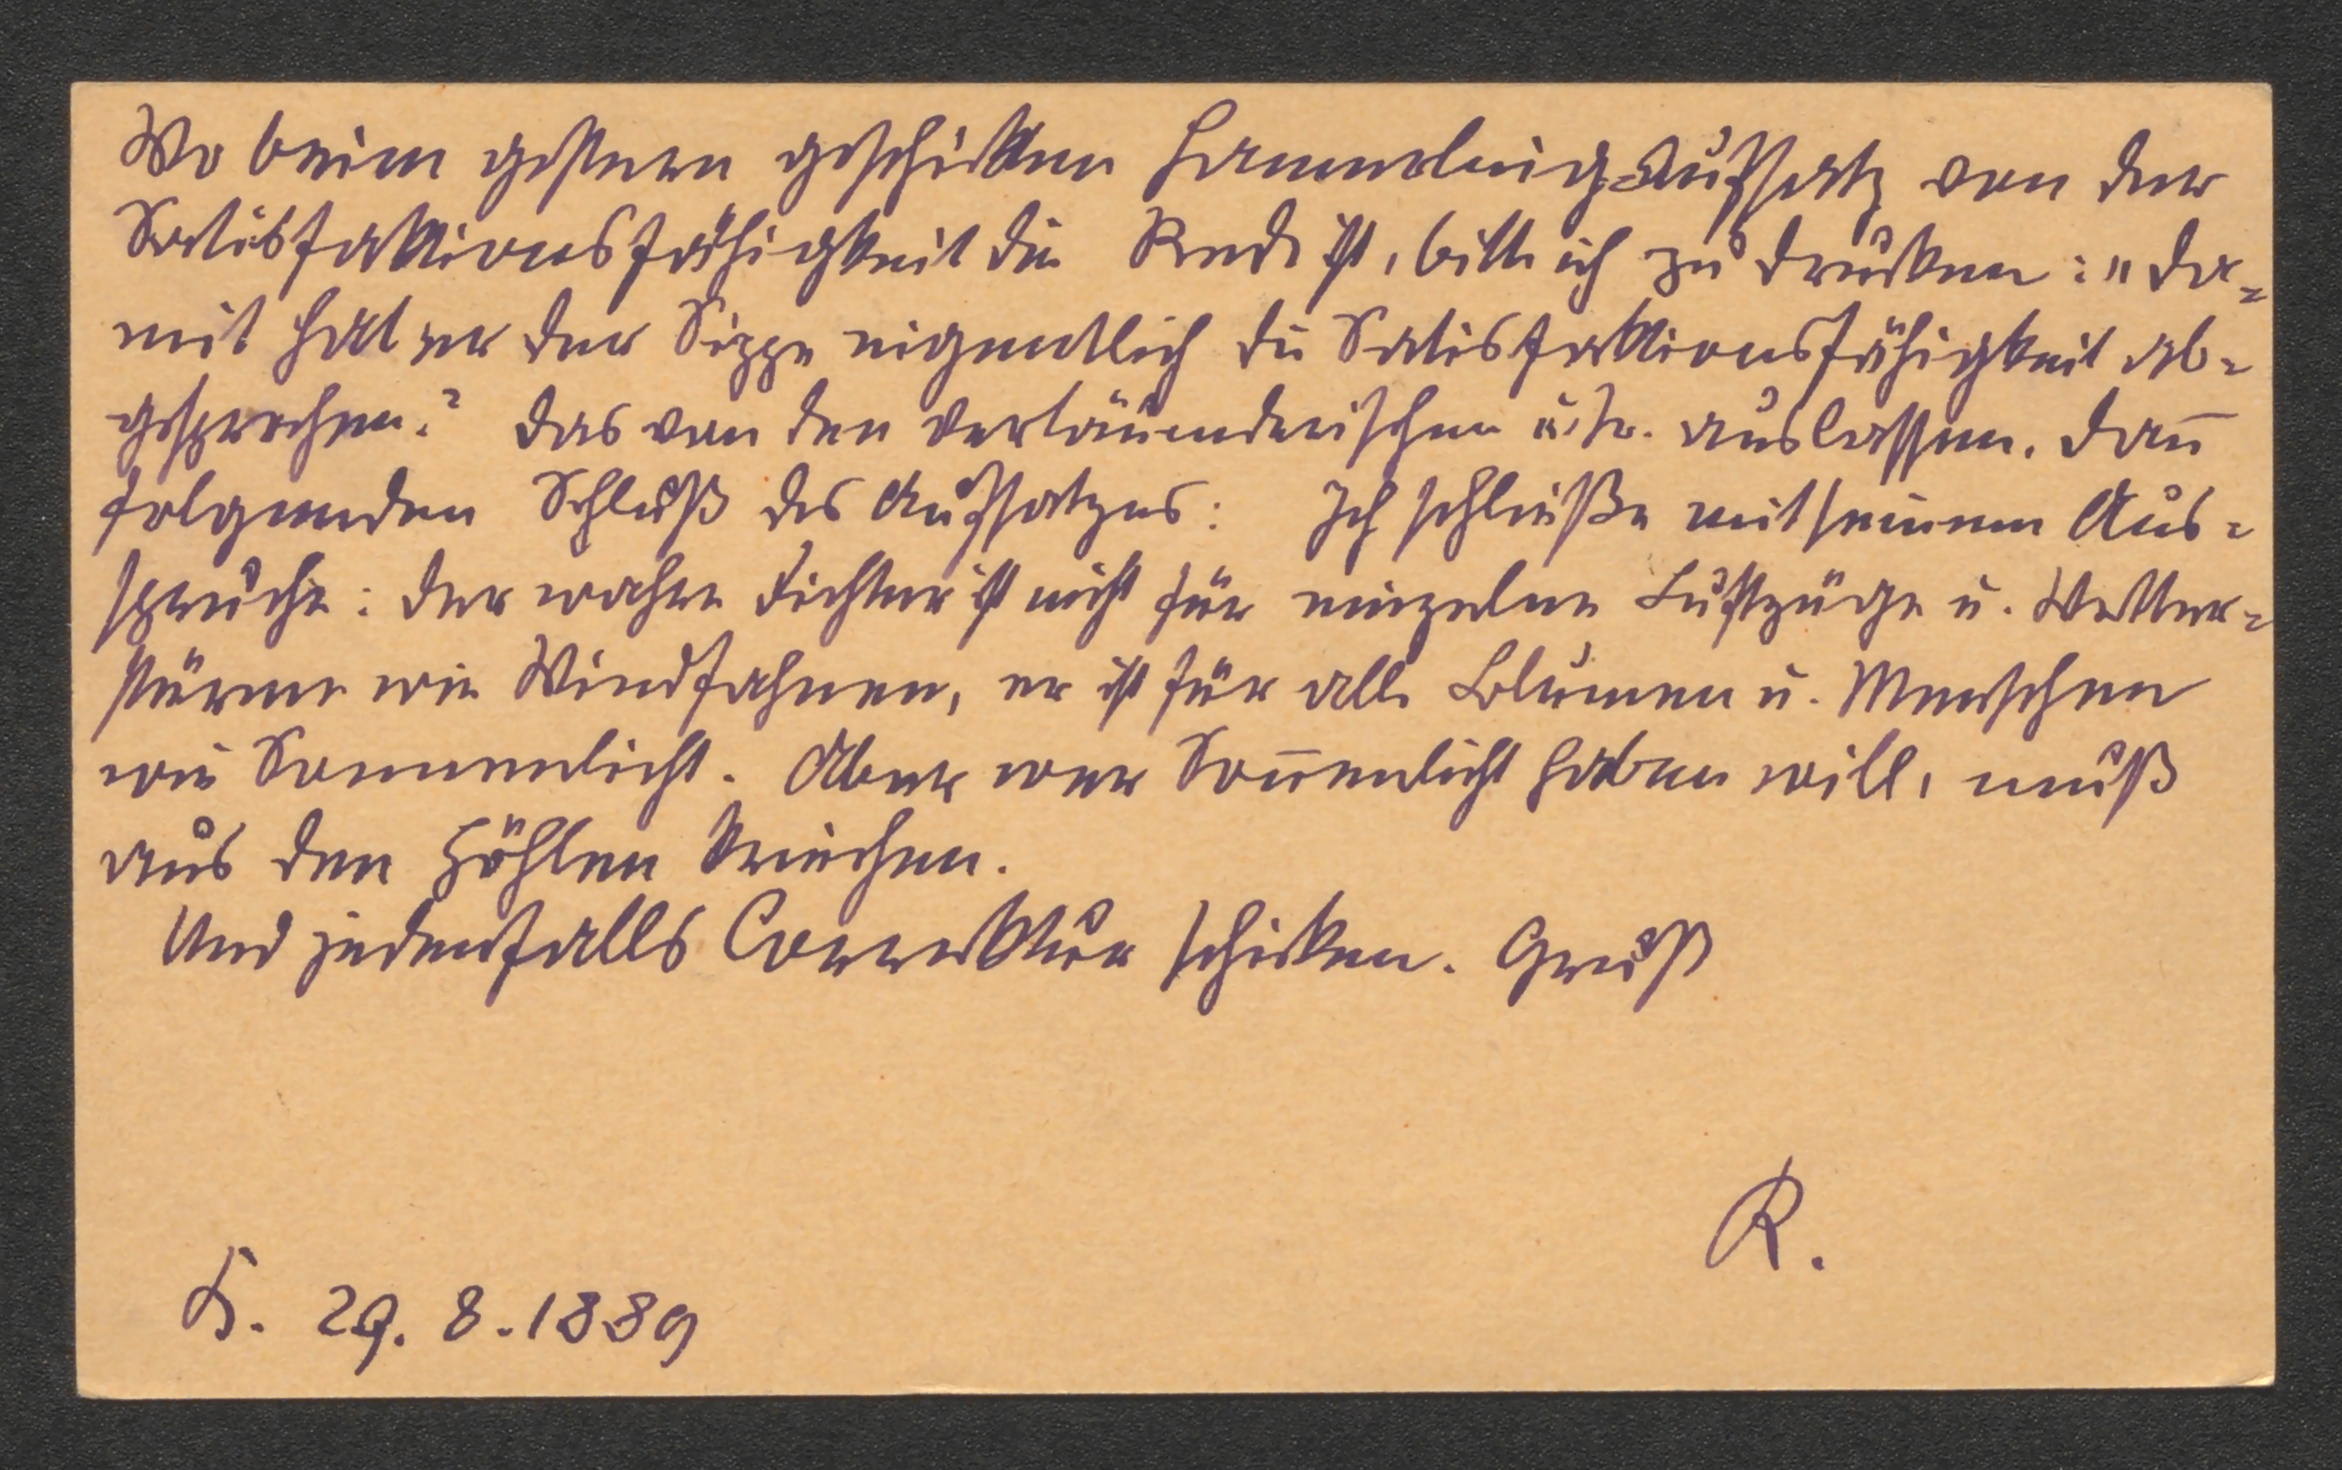 Wo beim gestern geschickten Hamerling-Aufsatz von der
Satisfaktionsfähigkeit die Rede ist, bitte ich zu drucken: "Da=
mit hat er der Sippe eigentlich die Satisfaktionsfähigkeit ab=
gesprochen." Das von den verläumderischen u.s.w. auslassen. Dan̅
folgenden Schluß des Aufsatzes: Ich schließe mit seinem Aus=
spruche: Der wahre Dichter ist nicht für einzelne Luftzüge u. Wetter=
stürme wie Windfahnen, er ist für alle Blumen u. Menschen
wie Sonnenlicht. Aber wer Son̅enlicht haben will, muß
aus den Höhlen kriechen.
Und jedenfalls Correktur schicken. Gruß
R.
K. 29. 8. 1889